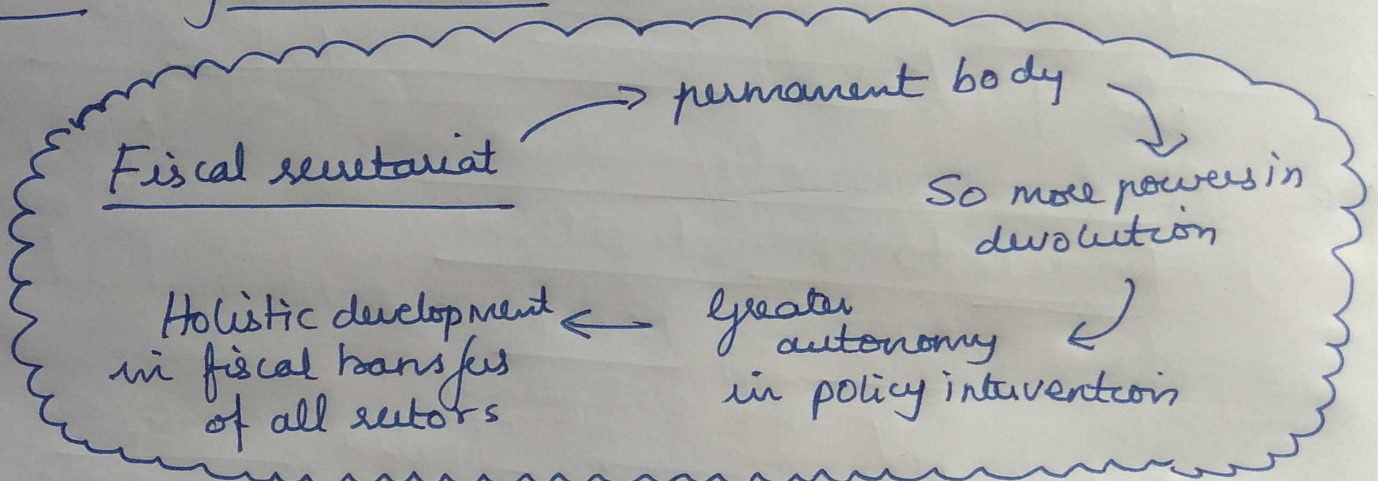 Fiscal secretariat
permanent body
So more powers in
devolution
Greater
autonomy
in policy intervention
Holistic development
in fiscal transfers
of all sectors